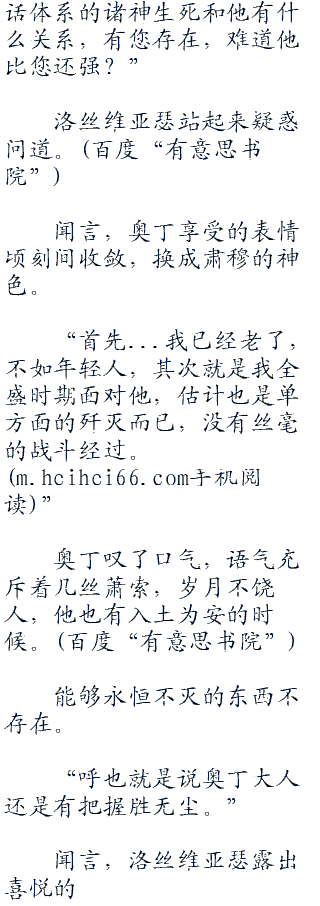 话体系的诸神生死和他有什
么关系，有您存在，难道他
比您还强？”
洛丝维亚瑟站起来疑惑
问道。(百度“有意思书
院”)
闻言，奥丁享受的表情
顷刻间收敛，换成肃穆的神
色。
“首先...我已经老了，
不如年轻人，其次就是我全
盛时期面对他，估计也是单
方面的歼灭而已，没有丝毫
的战斗经过。
(m.hcihci66.com手机阅
读)”
奥丁叹了口气，语气充
斥着几丝萧索，岁月不饶
人，他也有入土为安的时
候。(百度“有意思书院”)
能够永恒不灭的东西不
存在。
“呼也就是说奥丁大人
还是有把握胜无尘。”
闻言，洛丝维亚瑟露出
喜悦的